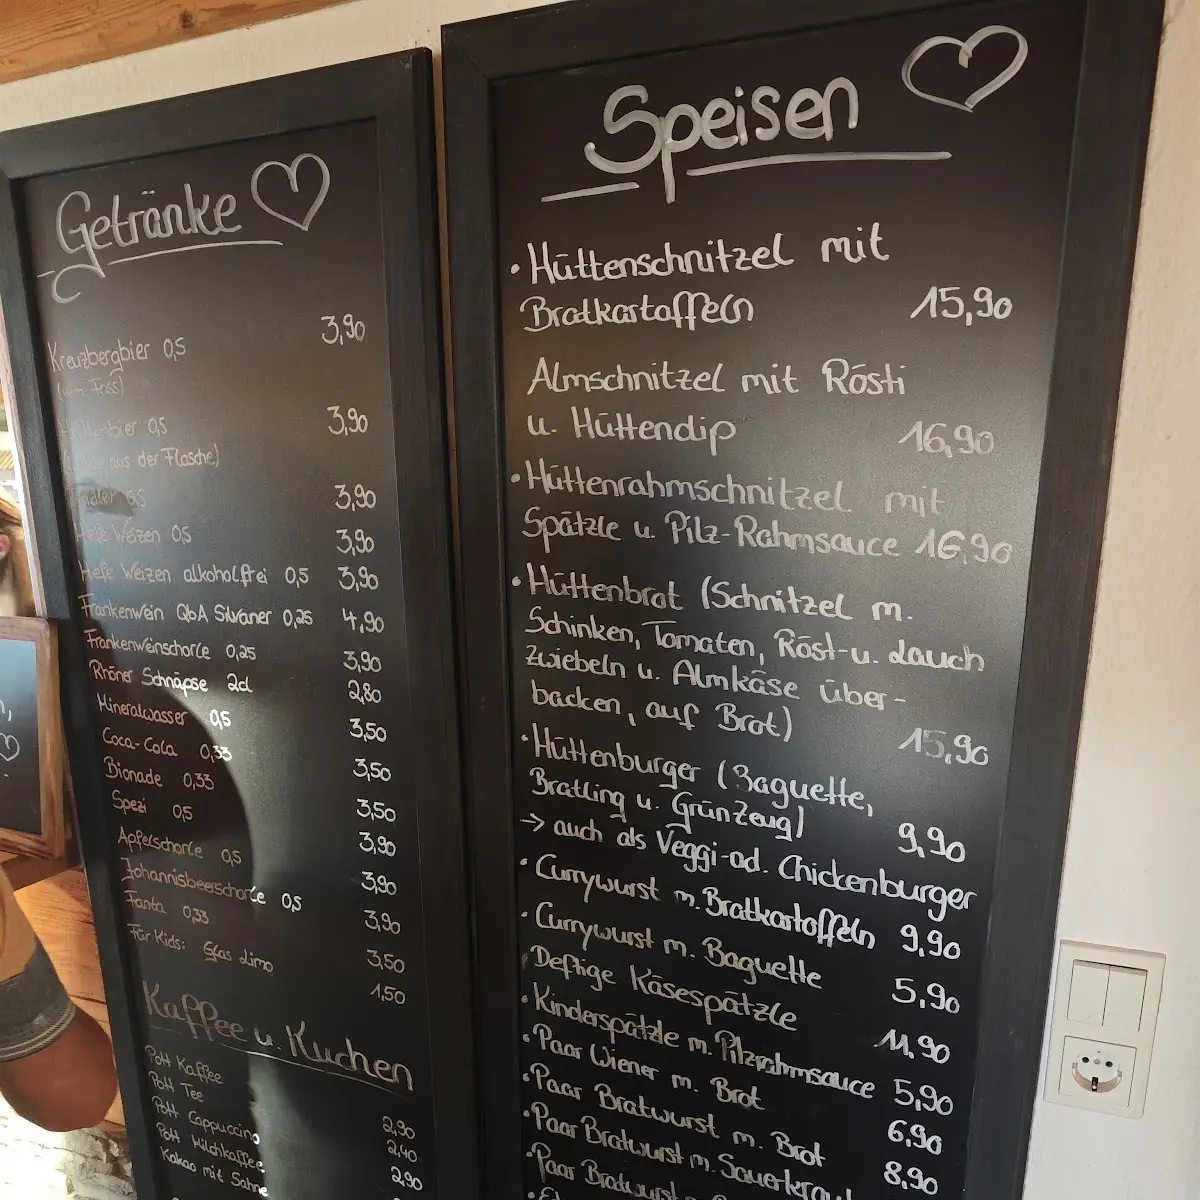 Getränke
Kreuzbergbier 0,5 3,90
(vom Fass)
Hüttenbier 0,5 3,90
aus der Flasche)
Radler 0,5 3,90
Hefe Weizen 0,5 3,90
Hefe Weizen alkoholfrei 0,5 3,90
Frankenwein QbA Silvaner 0,25 4,90
Frankenweinschorle 0,25 3,90
Rhöner Schnäpse 2cl 2,80
Mineralwasser 0,5 3,50
Coca-Cola 0,33 3,50
Bionade 0,33 3,50
Spezi 0,5 3,90
Apfelschorle 0,5 3,90
Johannisbeerschorle 0,5 3,90
Fanta 0,33 3,50
Für Kids: Glas Limo 1,50
Kaffee u. Kuchen
Pott Kaffee 2,90
Pott Tee 2,40
Pott Cappuccino 2,90
Pott Milchkaffee
Kakao mit Sahne
Speisen
• Hüttenschnitzel mit
Bratkartoffeln 15,90
Almschnitzel mit Rösti
u. Hüttendip 16,90
• Hüttenrahmschnitzel mit
Spätzle u. Pilz-Rahmsauce 16,90
• Hüttenbrot (Schnitzel m.
Schinken, Tomaten, Röst-u. Lauch
zwiebeln u. Almkäse über-
backen, auf Brot) 15,90
• Hüttenburger (Baguette,
Bratling u. Grünzeug) 9,90
→ auch als Veggi-od. Chickenburger
• Currywurst m. Bratkartoffeln 9,90
• Currywurst m. Baguette 5,90
Deftige Käsespätzle 11,90
• Kinderspätzle m. Pilzrahmsauce 5,90
• Paar Wiener m. Brot 6,90
• Paar Bratwurst m. Brot 8,90
• Paar Bratwurst m. Sauerkraut
• Paar Bratwurst